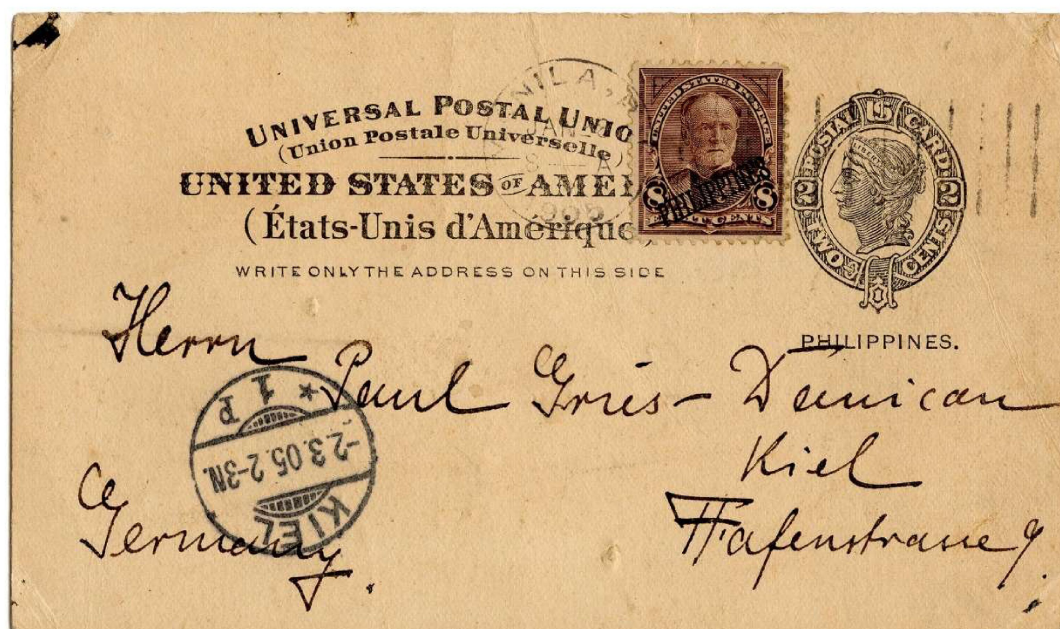 UNIVERSAL POSTAL UNIO
(Union Postale Universelle
UNITED STATES OF AMER
(États-Unis d'Amérique)
WRITE ONLY THE ADDRESS ON THIS SIDE
NILA,
JAN
UNITED STATES POSTAGE
8 8
EIGHT CENTS
PHILIPPINES
POSTAL CARD
LIBERTY
2 2
TWO CENTS
PHILIPPINES.
Herrn
Paul Gries-Danican
Kiel
Hafenstrasse 9
Germany.
* 1 P
-2.3.05.2-3N.
KIEL